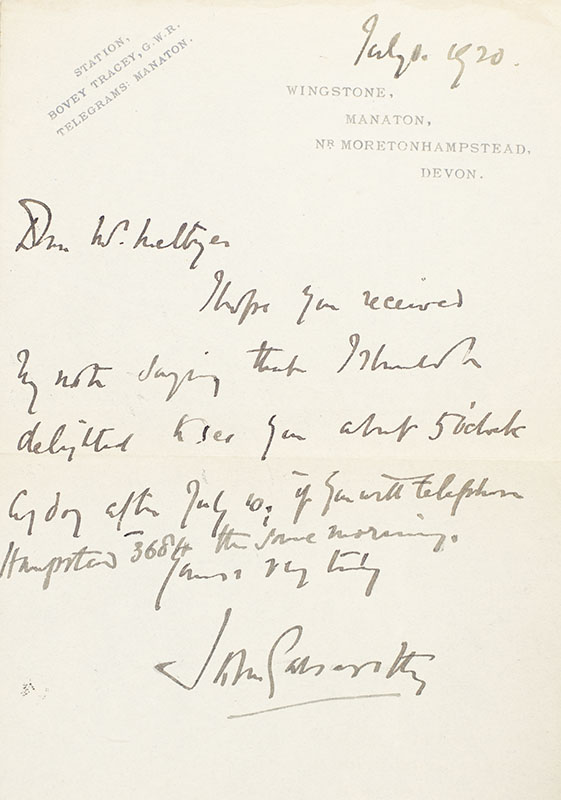 STATION,
BOVEY TRACEY, G.W.R.
TELEGRAMS: MANATON.
July 1. 1920.
WINGSTONE,
MANATON,
NR MORETONHAMPSTEAD,
DEVON.
Dear Mr. Meltzer
I hope you received
my note saying that I should be
delighted to see you about 5 o'clock
any day after July 10, if you will telephone
Hampstead 3684 the same morning.
Yours very truly
John Galsworthy